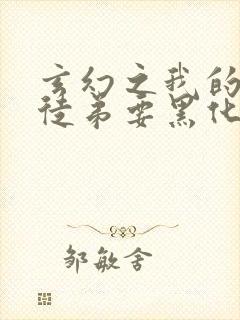 玄幻之我的
徒弟要黑化
邹敏舍